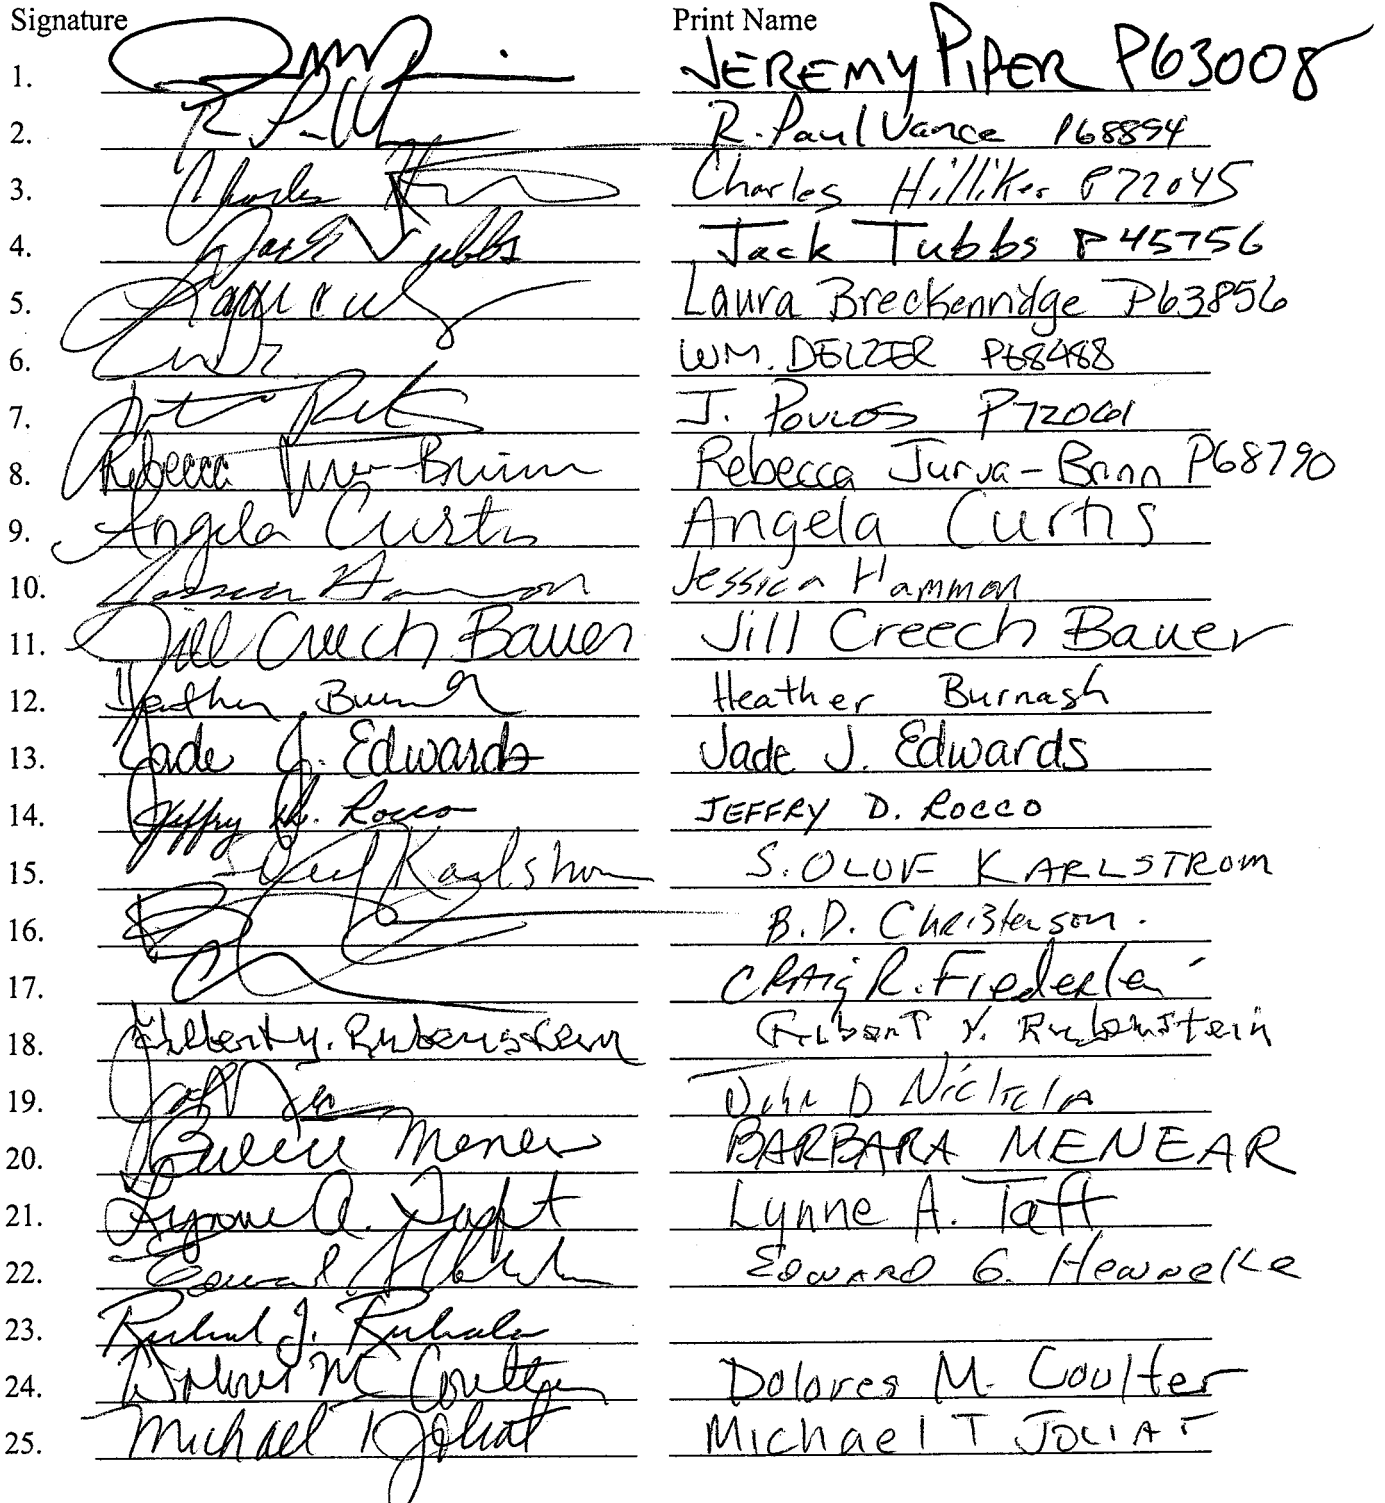 Signature Print Name
1. JEREMY PIPER P63008
2. R. Paul Vance P68894
3. Charles Hilliker P72045
4. Jack Tubbs Jack Tubbs P45756
5. Laura Breckenridge P63856
6. WM. DELZER P68488
7. J. POULOS P72061
8. Rebecca Jurva-Brinn Rebecca Jurva-Brinn P68790
9. Angela Curtis Angela Curtis
10. Jessica Hammon Jessica Hammon
11. Jill Creech Bauer Jill Creech Bauer
12. Heather Heather Burnash
13. Jade J. Edwards Jade J. Edwards
14. Jeffry D. Rocco JEFFRY D. ROCCO
15. Karlstrom S. OLOF KARLSTROM
16. B.D. Christenson.
17. CRAIG R. Fiederlein
18. Gilbert Y. Rubenstein Gilbert Y. Rubenstein
19. John D Nickola
20. Menear BARBARA MENEAR
21. Lynne A. Taft Lynne A. Taft
22. EDWARD G. Henneke
23. J.
24. Dolores M. Coulter Dolores M. Coulter
25. Michael T Joliat Michael T JOLIAT